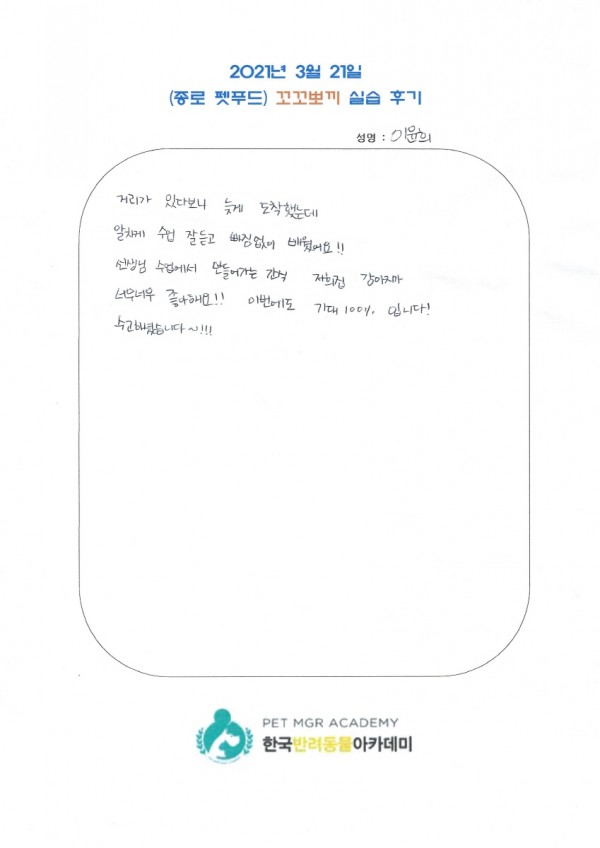 2021년 3월 21일
(종로 펫푸드) 꼬꼬뽀끼 실습 후기
성명 : 이윤희
거리가 있다보니 늦게 도착했눈데
알차게 수업 잘듣고 빠짐없이 배웠어요!!
선생님 수업에서 만들어가는 간식 저희집 강아지가
너무너무 좋아해요!! 이번에도 기대 100% 입니다!
수고하셨습니다~!!!
PET MGR ACADEMY
한국반려동물아카데미